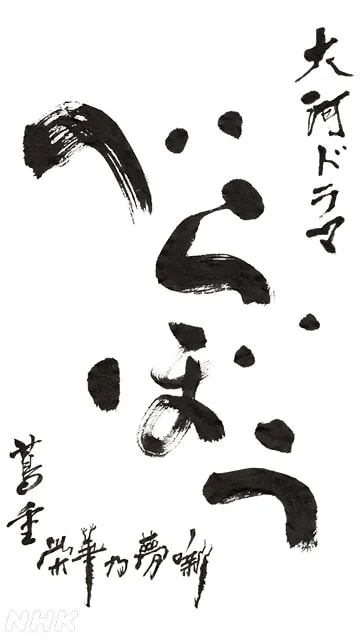 大河ドラマ
べらぼう
蔦重
栄華乃夢噺
NHK